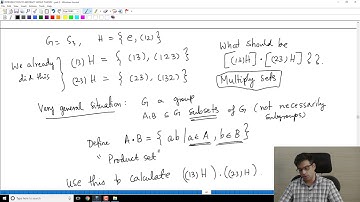 G = S₃, H = { e, (12) }
We already did this
(13) H = { (13), (123) }
(23) H = { (23), (132) }
What should be
[(13)H] · [(23)H] ??
Multiply sets
Very general situation: G a group
A, B ⊆ G subsets of G (not necessarily subgroups)
Define A·B = { ab | a ∈ A, b ∈ B }
"Product set"
Use this to calculate ((13) H) · ((23) H).